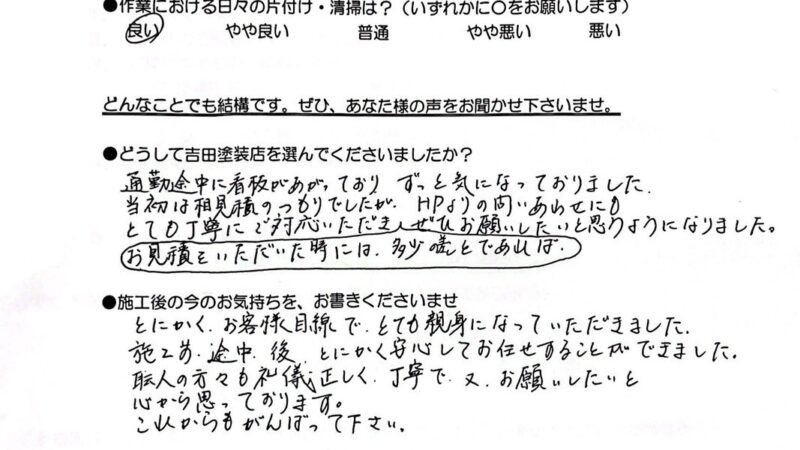 ●作業における日々の片付け・清掃は？（いずれかに○をお願いします）
良い やや良い 普通 やや悪い 悪い
どんなことでも結構です。ぜひ、あなた様の声をお聞かせ下さいませ。
●どうして吉田塗装店を選んでくださいましたか？
通勤途中に看板があがっており ずっと気になっておりました.
当初は相見積のつもりでしたが、HPよりの問いあわせにも
とても丁寧にご対応いただき、ぜひお願いしたいと思うようになりました。
お見積をいただいた時には、多少の差とであれば、
●施工後の今のお気持ちを、お書きくださいませ
とにかく、お客様目線で、とても親身になっていただきました.
施工前、途中、後、とにかく安心してお任せすることができました.
職人の方々も礼儀正しく、丁寧で、又、お願いしたいと
心から思っております。
これからもがんばって下さい.